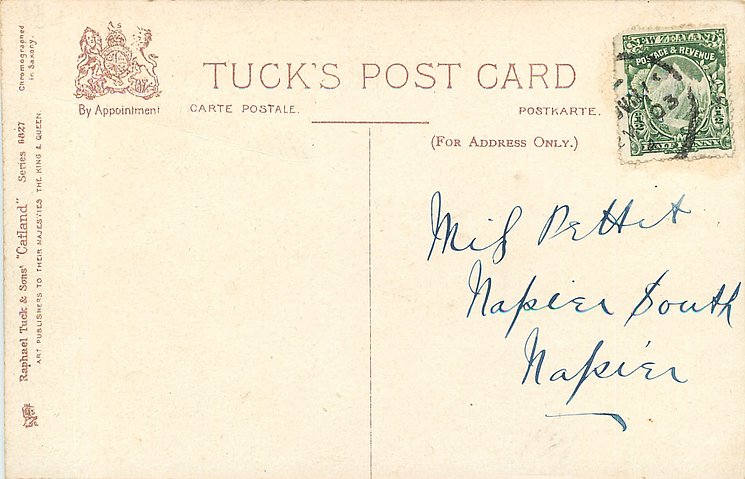 By Appointment
TUCK'S POST CARD
CARTE POSTALE. POSTKARTE.
(FOR ADDRESS ONLY.)
NEW ZEALAND
POSTAGE & REVENUE
HALF PENNY
Miss Pettit
Napier South
Napier
Raphael Tuck & Sons' "Catland" Series 6827
ART PUBLISHERS TO THEIR MAJESTIES THE KING & QUEEN.
Chromographed
in Saxony.